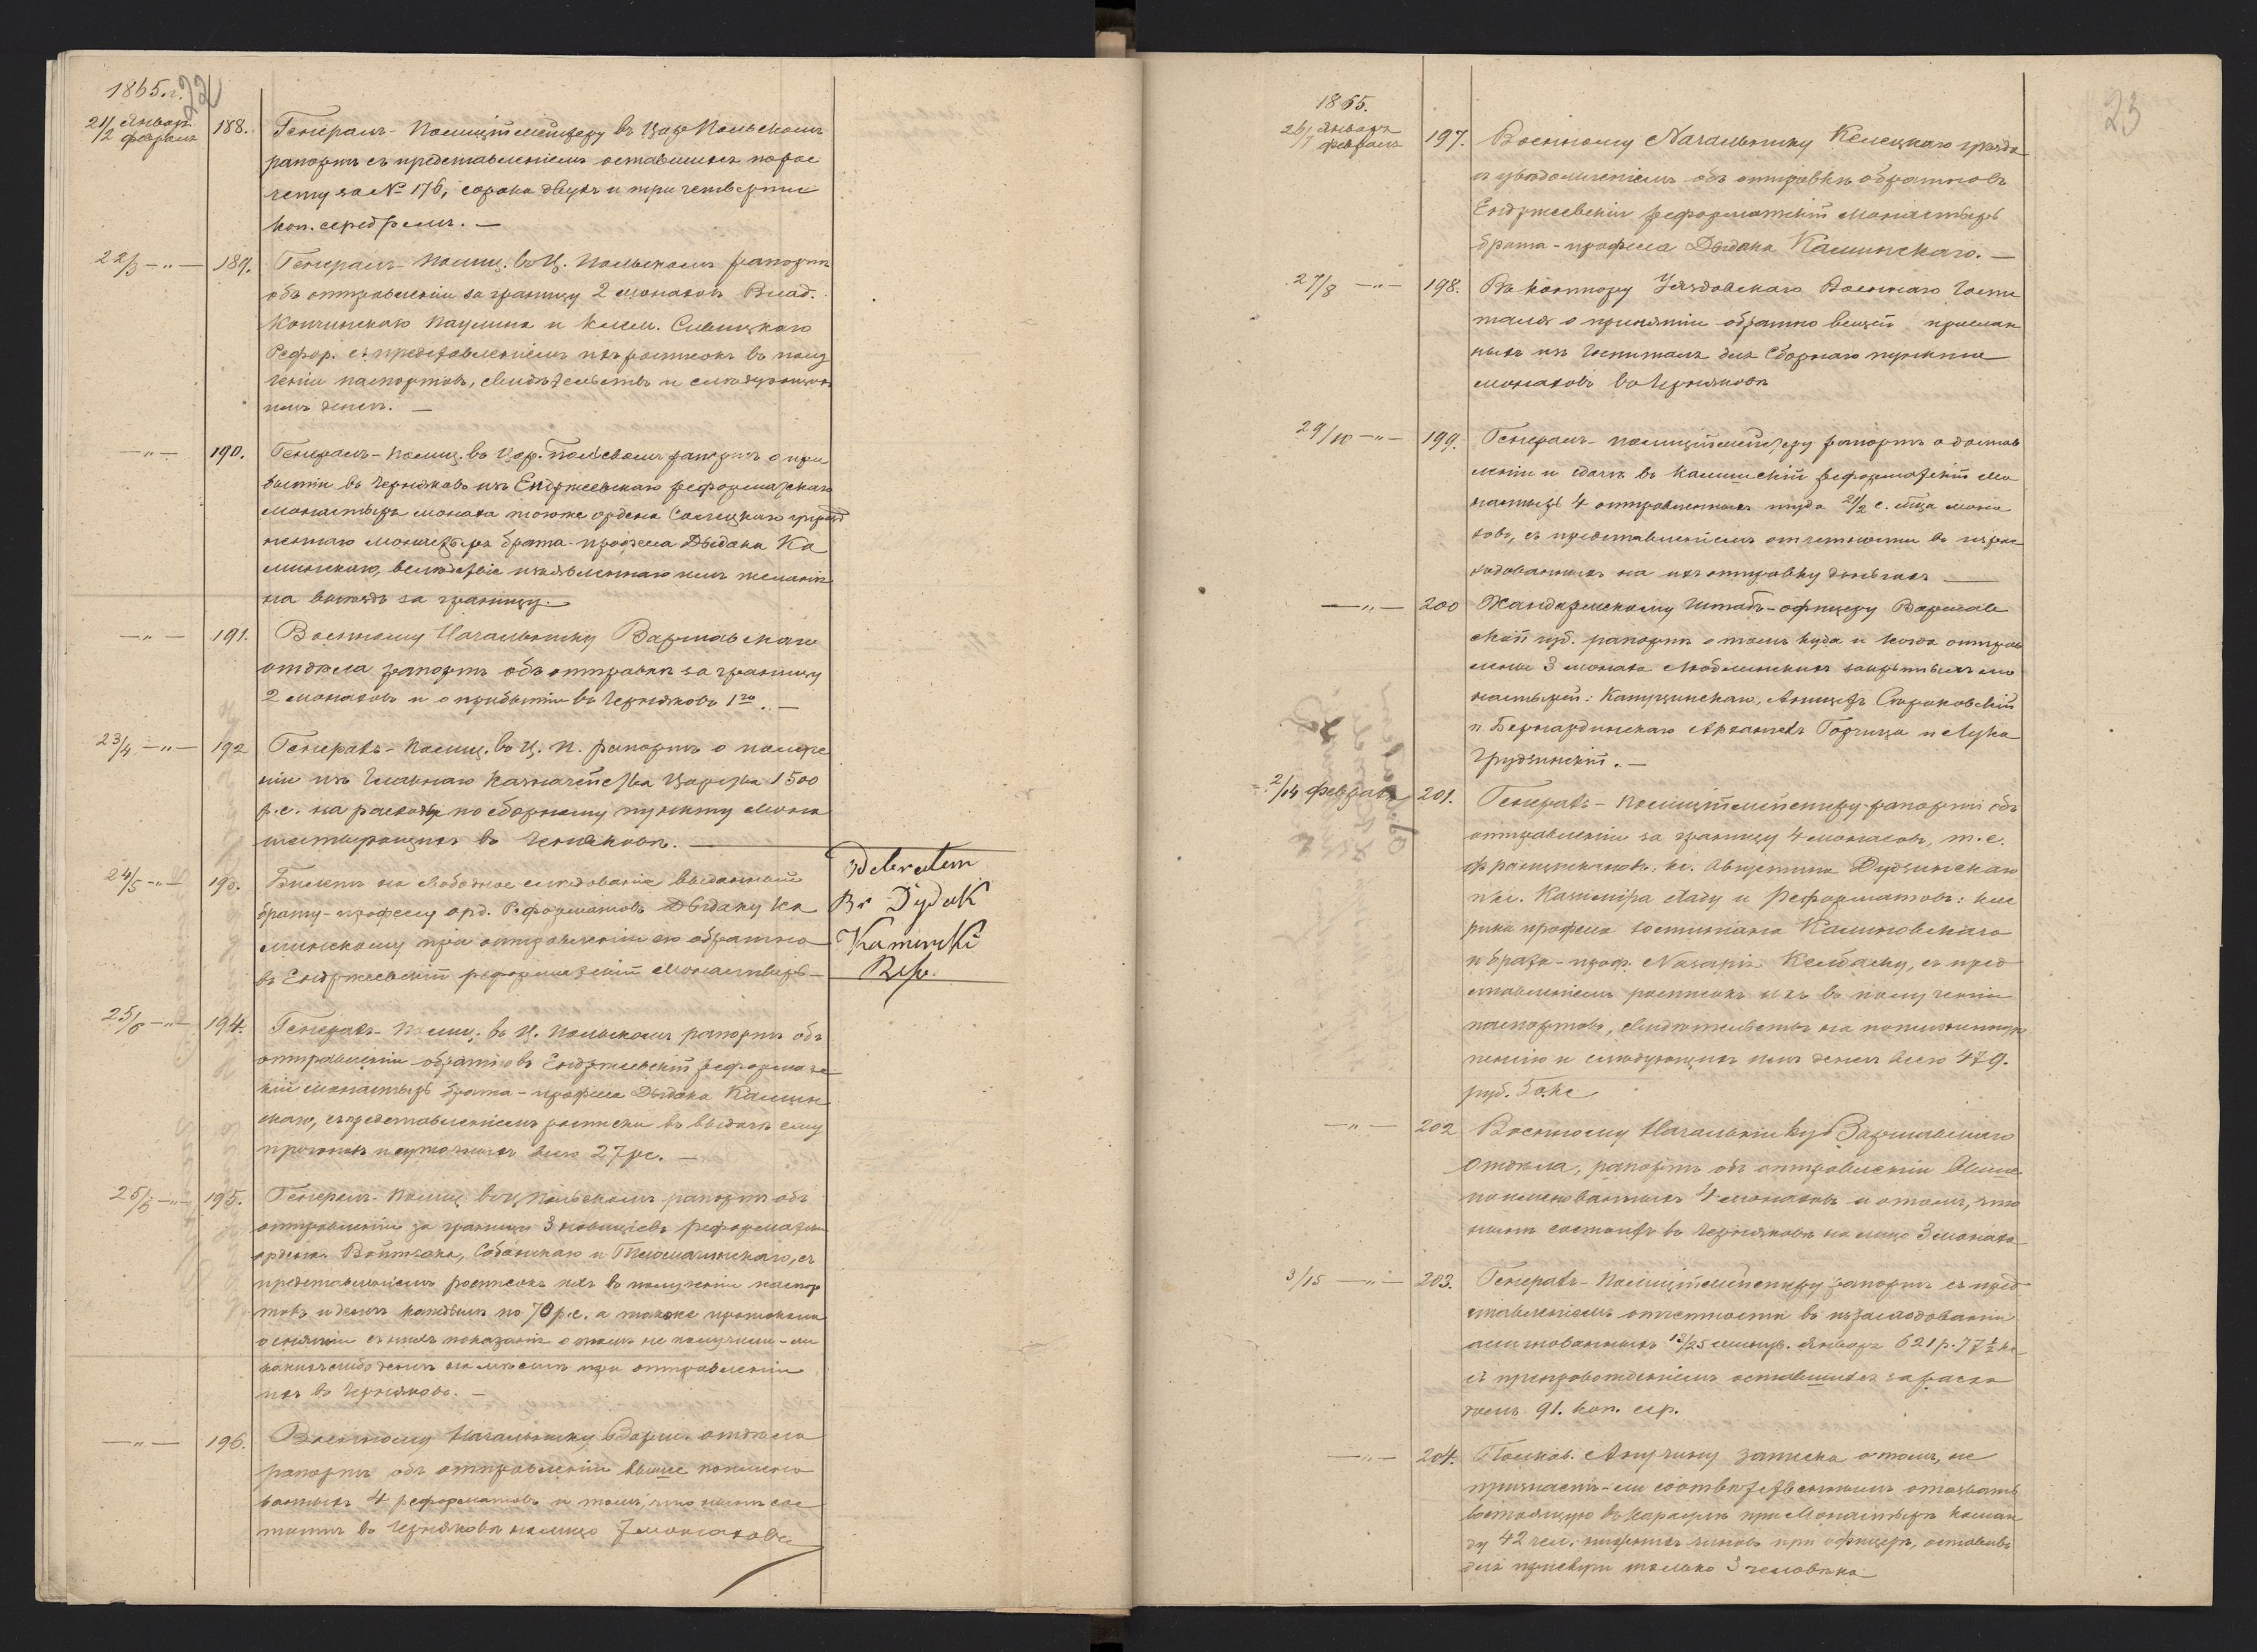 1865.г.
22
21/2 Январ. Февраля
188. Генералъ-Полицiймейстеру въ Цар. Польскомъ
рапортъ съ представленiемъ оставшихся по рос
чету за № 176, сорока двухъ и три четверти
коп. серебромъ. —
22/3 —„— 189. Генералъ-Полиц. въ Ц. Польскомъ рапортъ
объ отправленiи за границу 2 монаховъ Влад.
Копчинскаго Паулина и Клем. Сливицкаго
Рефор. съ представленiемъ ихъ росписокъ въ полу
ченiи паспортовъ, свидѣтельствъ и слѣдующихъ
имъ денегъ. —
—„— 190. Генералъ-Полиц. въ Цар. Польскомъ рапортъ о при
бытiи въ Черняковъ изъ Енджеевскаго реформатскаго
монастыря монаха того же ордена Солецкаго упраз
неннаго монастыря брата-професа Дыдака Ка
минскаго, вслѣдствiе изъявленнаго имъ желанiя
на выѣздъ за границу. —
—„— 191. Военному Начальнику Варшавскаго
отдѣла рапортъ объ отправкѣ за границу
2 монаховъ и о прибытiи въ Черняковъ 1го. —
23/4 —„— 192 Генералъ-Полиц. въ Ц. П. рапортъ о получе
нiи изъ Главнаго Казначейства Царства 1500
р.с. на расходы по сборному пункту Мона
шествующихъ въ Черняковѣ. —
24/5 —„— 193. Билетъ на свободное слѣдованiе выданный
брату-професу орд. Реформатовъ Дыдаку Ка
минскому при отправленiи его обратно
въ Енджеевскiй реформатскiй Монастырь —
Odebrałem
Br Dydak
Kamiński
Ref.
25/6 —„— 194. Генералъ-Полиц. въ Ц. Польскомъ рапортъ объ
отправленiи обратно въ Енджеевскiй реформатс
кiй Монастырь брата-професа Дыдака Камин
скаго, съ представленiемъ росписки въ выдачѣ ему
прогоновъ и суточныхъ всего 27 рс. —
25/6 —„— 195. Генералъ-Полиц. въ Ц. Польскомъ рапортъ объ
отправленiи за границу 3 новицiевъ реформатск.
ордена. Собанскаго и съ
представленiемъ росписокъ ихъ въ полученiи паспор
товъ и денегъ каждымъ по 70 р.с. а также протокола
о снятiи съ нихъ показанiя о томъ не получили-ли
какихъ либо денегъ на мѣстѣ при отправленiи
ихъ въ Черняковъ. —
—„— 196. Военному Начальнику Варш. отдѣла
рапортъ объ отправленiи выше поимено
ванныхъ 4 реформатовъ и томъ, что нынѣ сос
тоитъ въ Черняковѣ на лицо 7 монаховъ
23
1865.
26/7 Января Февраля
197. Военному Начальнику Келецкаго уѣзда
съ увѣдомленiемъ объ отправкѣ обратно въ
Енджеевскiй реформатскiй монастырь
брата-професа Дыдака Каминскаго. —
27/8 —„— 198. Въ контору Уяздовскаго Военнаго Госпи
таля о принятiи обратно вещей прислан
ныхъ изъ Госпиталя для Сборнаго пункта
монаховъ въ Черняковѣ
29/10 —„— 199. Генералъ-Полицiймейстеру рапортъ о достав
ленiи и сдачѣ въ Калишскiй реформатскiй Мо
настырь 4 отправленныхъ туда 21/2 с. мѣсца мона
ховъ, съ представленiемъ отчетности въ израс
ходованныхъ на ихъ отправку деньгахъ —
—„— 200 Жандармскому Штабъ-офицеру Варшав
ской губ. рапортъ о томъ куда и когда отправ
лены 3 монаха Люблинскихъ закрытыхъ мо
настырей: Капуцинскаго, Аницетъ Стараковскiй
и Бернардинскаго Архангелъ Горчица и Лука
Грудзинскiй. —
2/14 февраля 201. Генералъ-Полицiймейстеру рапортъ объ
отправленiи за границу 4 монаховъ, т.е.
францискановъ: кс. Августина Дудзинскаго
и кс. Казимiра Ладу и Реформатовъ: кле
рика професа Калиновскаго
и брата-проф. Назарiя съ пред
ставленiемъ росписокъ ихъ въ полученiи
паспортовъ, свидѣтельствъ на пожизненную
пенсiю и слѣдующихъ имъ денегъ всего 479.
руб. 50.кс
—„— 202 Военному Начальнику Варшавскаго
Отдѣла, рапортъ объ отправленiи выше
поименованныхъ 4 монаховъ и о томъ, что
нынѣ состоитъ въ Черняковѣ на лицо 3 монаха
3/15 —„— 203. Генералъ-Полицiймейстеру рапортъ съ пред
ставленiемъ отчетности въ израсходованiи
асигнованныхъ 13/25 минув. Января 621 р. 77½ к
съ препровожденiемъ оставшихся за расхо
домъ 91. коп. сер.
—„— 204. Полков. Анучину записка о томъ, не
признаетъ-ли соотвѣтственнымъ отозвать
состоящую въ караулѣ при Монастырѣ коман
ду 42 чел. нижнихъ чиновъ при офицерѣ, оставивъ
для только 3 человѣка